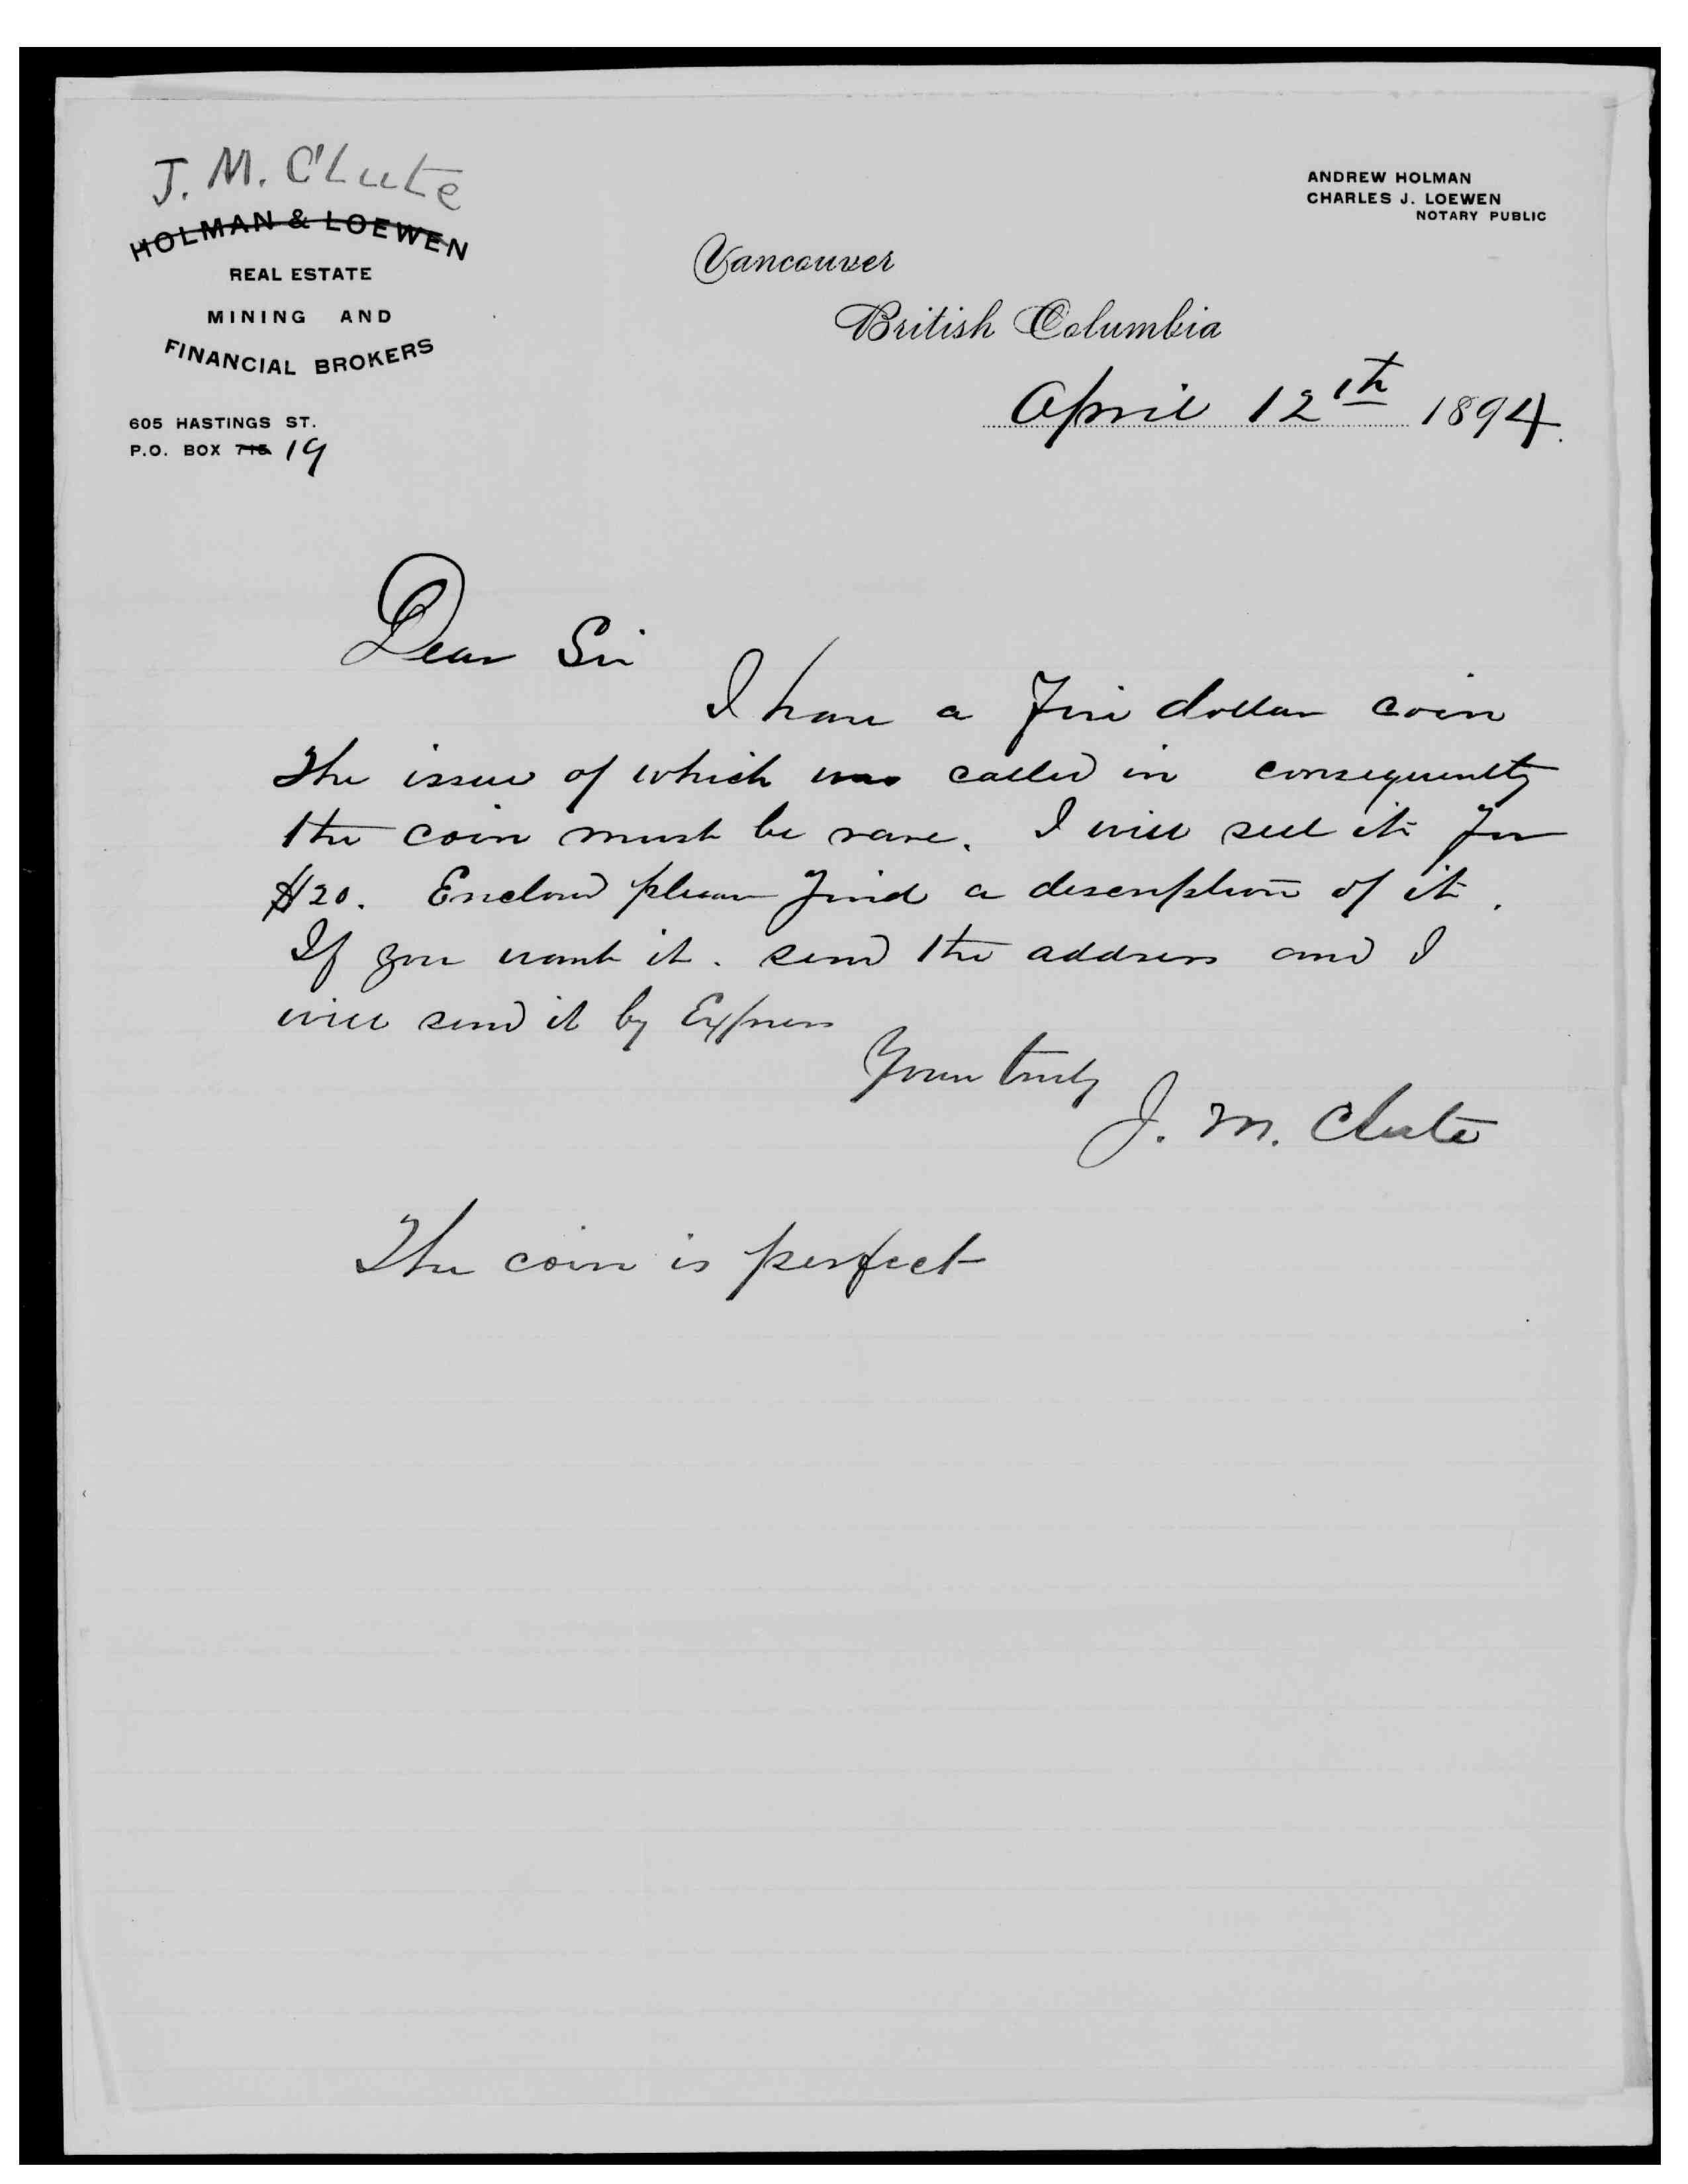 J. M. Clute
HOLMAN & LOEWEN
REAL ESTATE
MINING AND
FINANCIAL BROKERS
605 HASTINGS ST.
P.O. BOX 715 19
ANDREW HOLMAN
CHARLES J. LOEWEN
NOTARY PUBLIC
Vancouver
British Columbia
April 12th 1894.
Dear Sir
I have a Five dollar coin
The issue of which was called in consequently
the coin must be rare. I will sell it for
$20. Enclosed please find a description of it.
If you want it. send the address and I
will send it by Express
Yours truly
J. M. Clute
The coin is perfect